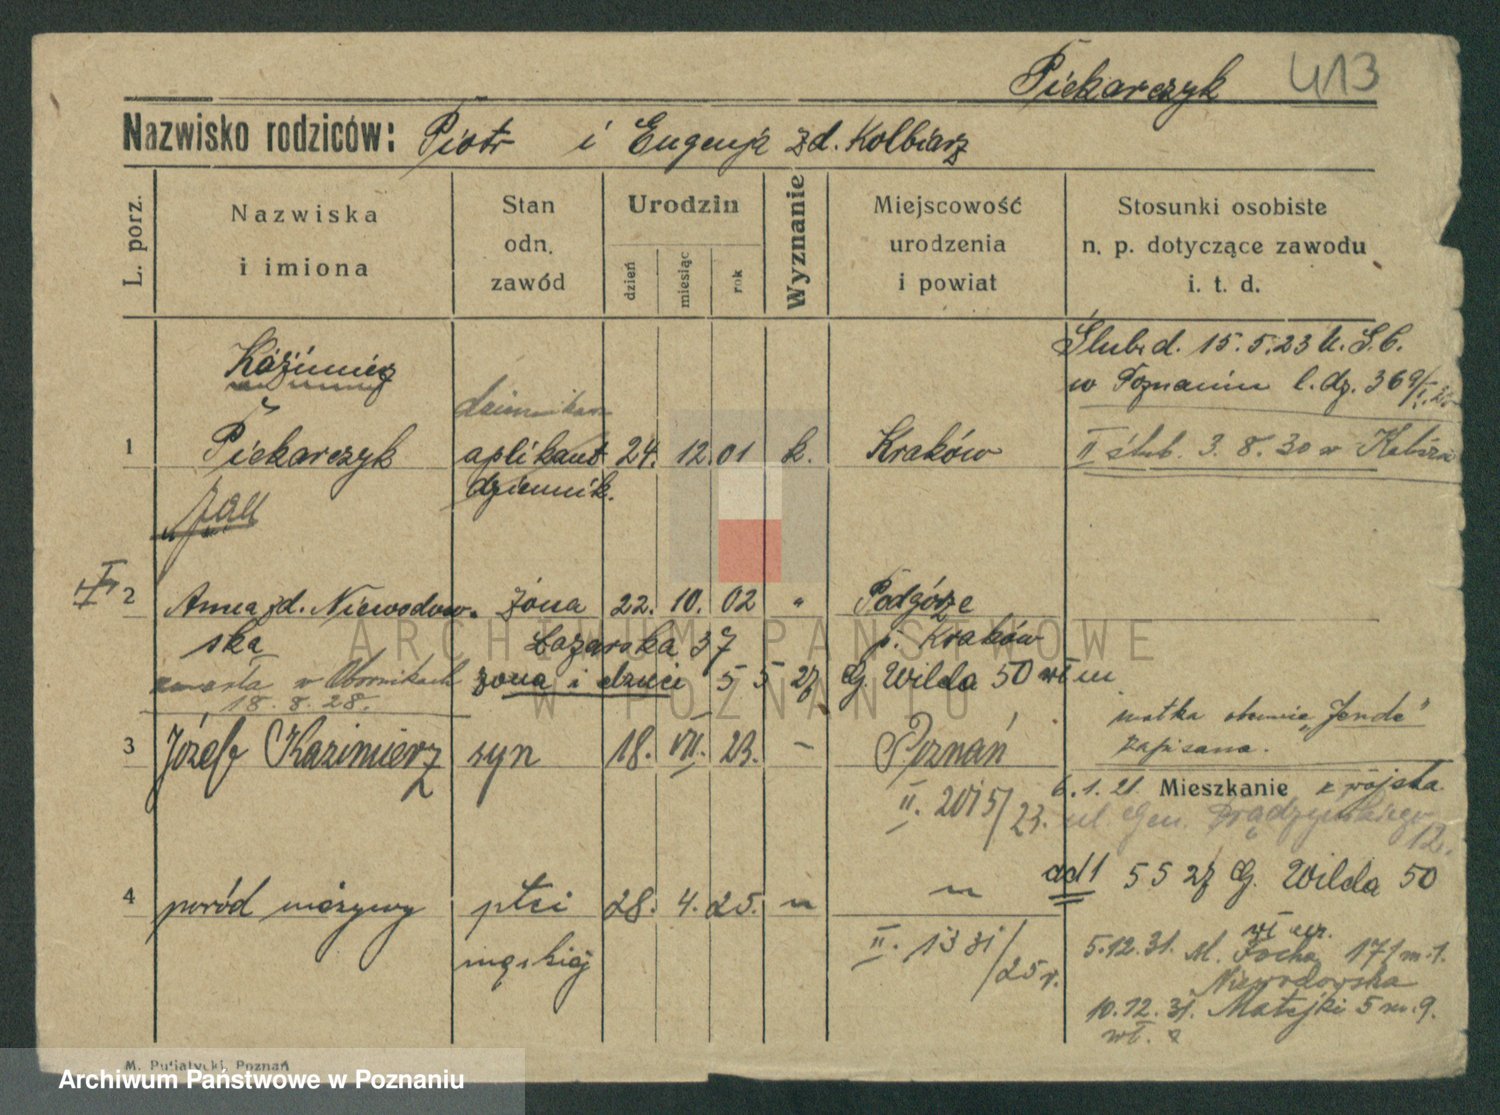 Piekarczyk 413
Nazwisko rodziców: Piotr i Eugenja zd. Kolbiarz
L. porz.
Nazwiska
i imiona
Stan
odn.
zawód
Urodzin
dzień
miesiąc
rok
Wyznanie
Miejscowość
urodzenia
i powiat
Stosunki osobiste
n. p. dotyczące zawodu
i. t. d.
Kazimierz
1 Piekarczyk
dziennikarz
aplikant 24. 12. 01 k. Kraków
dziennik.
Ślub d. 15. 5. 23 U. S. C.
w Poznaniu l. dz. 369/
II ślub. 3. 8. 30 w
I
2 Anna zd. Niewodow- żona 22. 10. 02 " Podgórze
ska Łazarska 37 p. Kraków
zmarła w Obornikach żona i dzieci 5 5 27 G. Wilda 50 wł m
18. 8. 28.
matka obecnie "Jende"
zapisana.
3 Józef Kazimierz syn 18. VII. 23. – Poznań
II. 2015/23.
6. 1. 21 Mieszkanie z wojska
ul. Gen. Prądzyńskiego
12.
ad 1 5 5 27 G. Wilda 50
4 poród nieżywy płci 28. 4. 25. " "
męskiej
II. 1331/25 r.
5.12.31. M. Focha 171 m. 1.
Niewodowska
10.12.31. Matejki 5 m. 9.
wł.
M. Putiatycki, Poznań
ARCHIWUM PAŃSTWOWE
W POZNANIU
Archiwum Państwowe w Poznaniu